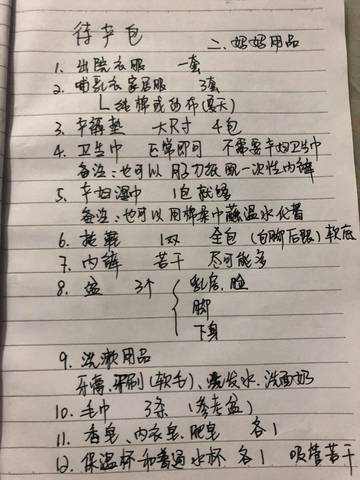 待产包
二、妈妈用品
1. 出院衣服 一套
2. 哺乳衣家居服 3套
纯棉或纱布(夏天)
3. 产褥垫 大尺寸 4包
4. 卫生巾 正常即可 不需要产妇卫生巾
备注:也可以用刀纸配一次性内裤
5. 产妇湿巾 1包就够
备注:也可以用棉柔巾蘸温水代替
6. 拖鞋 1双 全包(包脚后跟)软底
7. 内裤 若干 尽可能多
8. 盆 3个 乳房、脸
脚
下身
9. 洗漱用品
牙膏、牙刷(软毛)、洗发水、洗面奶
10. 毛巾 3条 (参考盆)
11. 香皂、内衣皂、肥皂 各1
12. 保温杯和普通水杯 各1 吸管若干